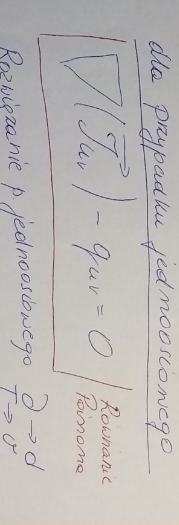 dla przypadku jednoosiowego
∇(J⃗uν) - quν = 0
Równanie
Rozwiązanie p. jednoosiowego ∂→d
T→υ